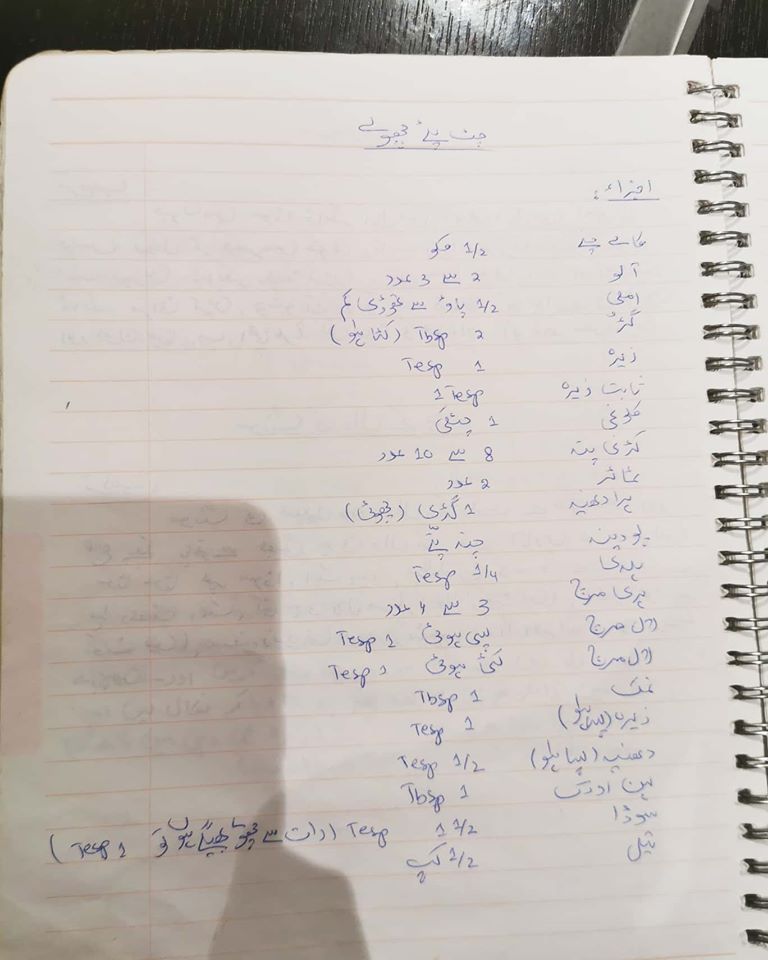 چٹ پٹے چھولے
اجزاء:
کالے چنے 1/2 کلو
آلو 2 سے 3 عدد
املی 1/2 پاؤ سے تھوڑی کم
گڑ 2 Tbsp (کٹا ہوا)
زیرہ 1 Tesp
ثابت زیرہ 1 Tesp
کلونجی 1 چٹکی
کڑی پتہ 8 سے 10 عدد
ٹماٹر 2 عدد
ہرا دھنیہ 1 گڈی (چھوٹی)
پودینہ چند پتے
ہلدی 1/4 Tesp
ہری مرچ 3 سے 4 عدد
لال مرچ پسی ہوئی 1 Tesp
لال مرچ کٹی ہوئی 1 Tesp
نمک 1 Tbsp
زیرہ (پسا ہوا) 1 Tesp
دھنیہ (پسا ہوا) 1/2 Tesp
لہسن ادرک 1 Tbsp
سوڈا 1 1/2 Tesp (رات سے چنے بھگا ہوں تو 1 Tesp)
تیل 1/2 کپ